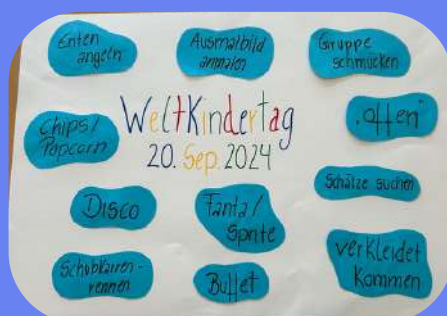 Enten
angeln
Ausmalbild
anmalen
Gruppe
schmücken
Chips/
Popcorn
Weltkindertag
20. Sep. 2024
"offen"
Disco
Fanta/
Sprite
Schätze suchen
Schubkarren-
rennen
Buffet
verkleidet
kommen